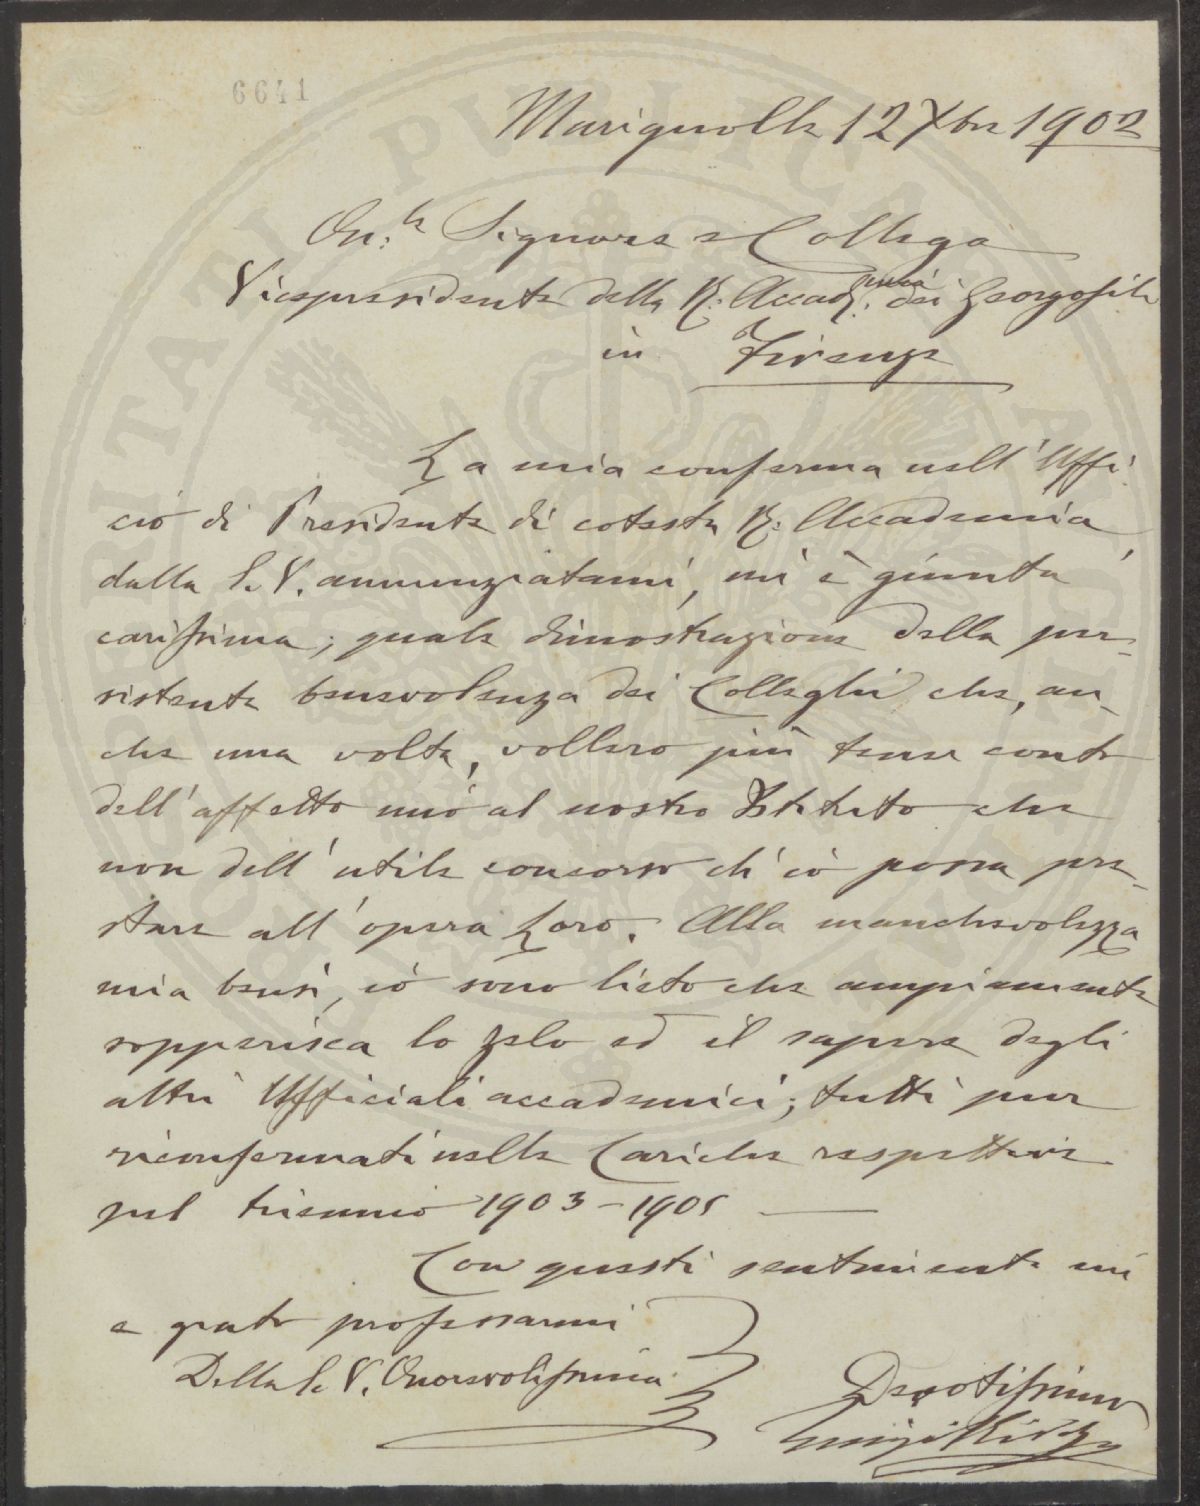 6641
Marignolle 12 Xbre 1902
On.le Signore e Collega
Vicepresidente della R: Accad.mia dei Georgofili
in Firenze
La mia conferma nell'Uffi-
cio di Presidente di cotesta R: Accademia,
dalla S. V. annunziatami, mi è giunta
carissima; quale dimostrazione della per-
sistente benevolenza dei Colleghi che, an-
che una volta, vollero più tener conto
dell'affetto mio al nostro Istituto che
non dell'utile concorso ch'io possa pre-
stare all'opera Loro. Alla manchevolezza
mia bensì, io sono lieto che ampiamente
sopperisca lo zelo ed il sapere degli
altri Ufficiali accademici; tutti pur
riconfermati nelle Cariche respettive
pel triennio 1903-1905
Con questi sentimenti mi
è grato professarmi
Della S. V. Onorevolissima
Devotissimo